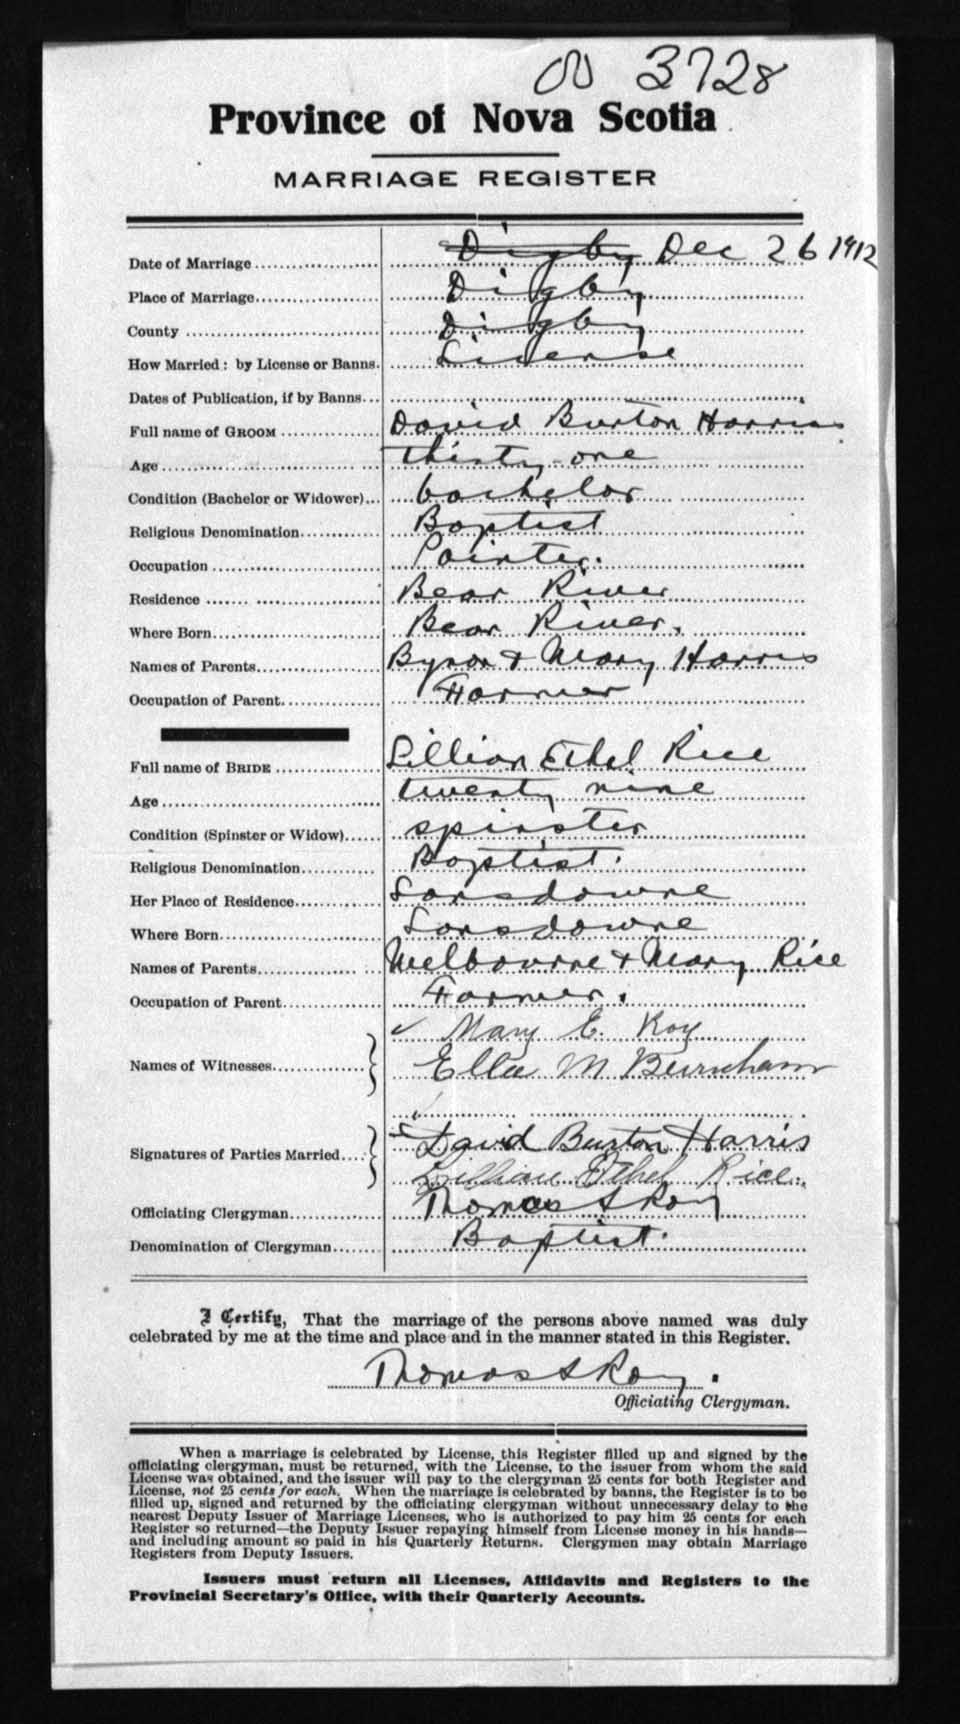 3728
Province of Nova Scotia
MARRIAGE REGISTER
Date of Marriage Digby Dec 26 1912
Place of Marriage Digby
County Digby
How Married: by License or Banns. License
Dates of Publication, if by Banns...
Full name of GROOM David Burton Harris
Age thirty-one
Condition (Bachelor or Widower)... bachelor
Religious Denomination Baptist
Occupation Painter.
Residence Bear River
Where Born Bear River.
Names of Parents Byron & Mary Harris
Occupation of Parent Farmer
Full name of BRIDE Lillian Ethel Rice
Age twenty nine
Condition (Spinster or Widow) spinster
Religious Denomination Baptist.
Her Place of Residence Lansdowne
Where Born Lansdowne
Names of Parents Melbourne & Mary Rice
Occupation of Parent Farmer.
Mary E. Roy
Names of Witnesses Ella M Burnham
David Burton Harris
Signatures of Parties Married Lillian Ethel Rice.
Officiating Clergyman Thomas S Roy
Denomination of Clergyman Baptist.
I Certify, That the marriage of the persons above named was duly
celebrated by me at the time and place and in the manner stated in this Register.
Thomas S Roy.
Officiating Clergyman.
When a marriage is celebrated by License, this Register filled up and signed by the
officiating clergyman, must be returned, with the License, to the issuer from whom the said
License was obtained, and the issuer will pay to the clergyman 25 cents for both Register and
License, not 25 cents for each. When the marriage is celebrated by banns, the Register is to be
filled up, signed and returned by the officiating clergyman without unnecessary delay to the
nearest Deputy Issuer of Marriage Licenses, who is authorized to pay him 25 cents for each
Register so returned—the Deputy Issuer repaying himself from License money in his hands—
and including amount so paid in his Quarterly Returns. Clergymen may obtain Marriage
Registers from Deputy Issuers.
Issuers must return all Licenses, Affidavits and Registers to the
Provincial Secretary's Office, with their Quarterly Accounts.